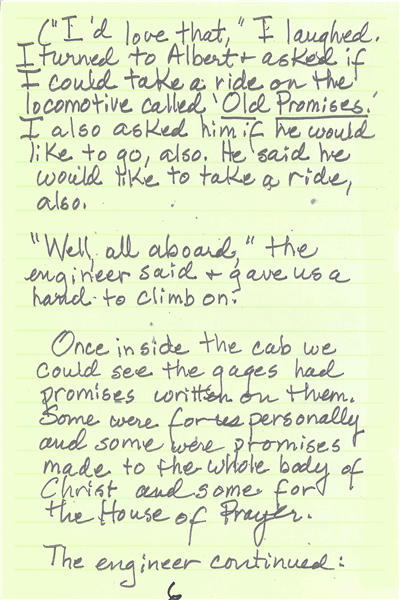 ("I'd love that," I laughed.
I turned to Albert + asked if
I could take a ride on the
locomotive called 'Old Promises.'
I also asked him if he would
like to go, also. He said he
would like to take a ride,
also.
"Well, all aboard," the
engineer said + gave us a
hand to climb on.
Once inside the cab we
could see the gages had
promises written on them.
Some were for us personally
and some were promises
made to the whole body of
Christ and some for
the House of Prayer.
The engineer continued:
6